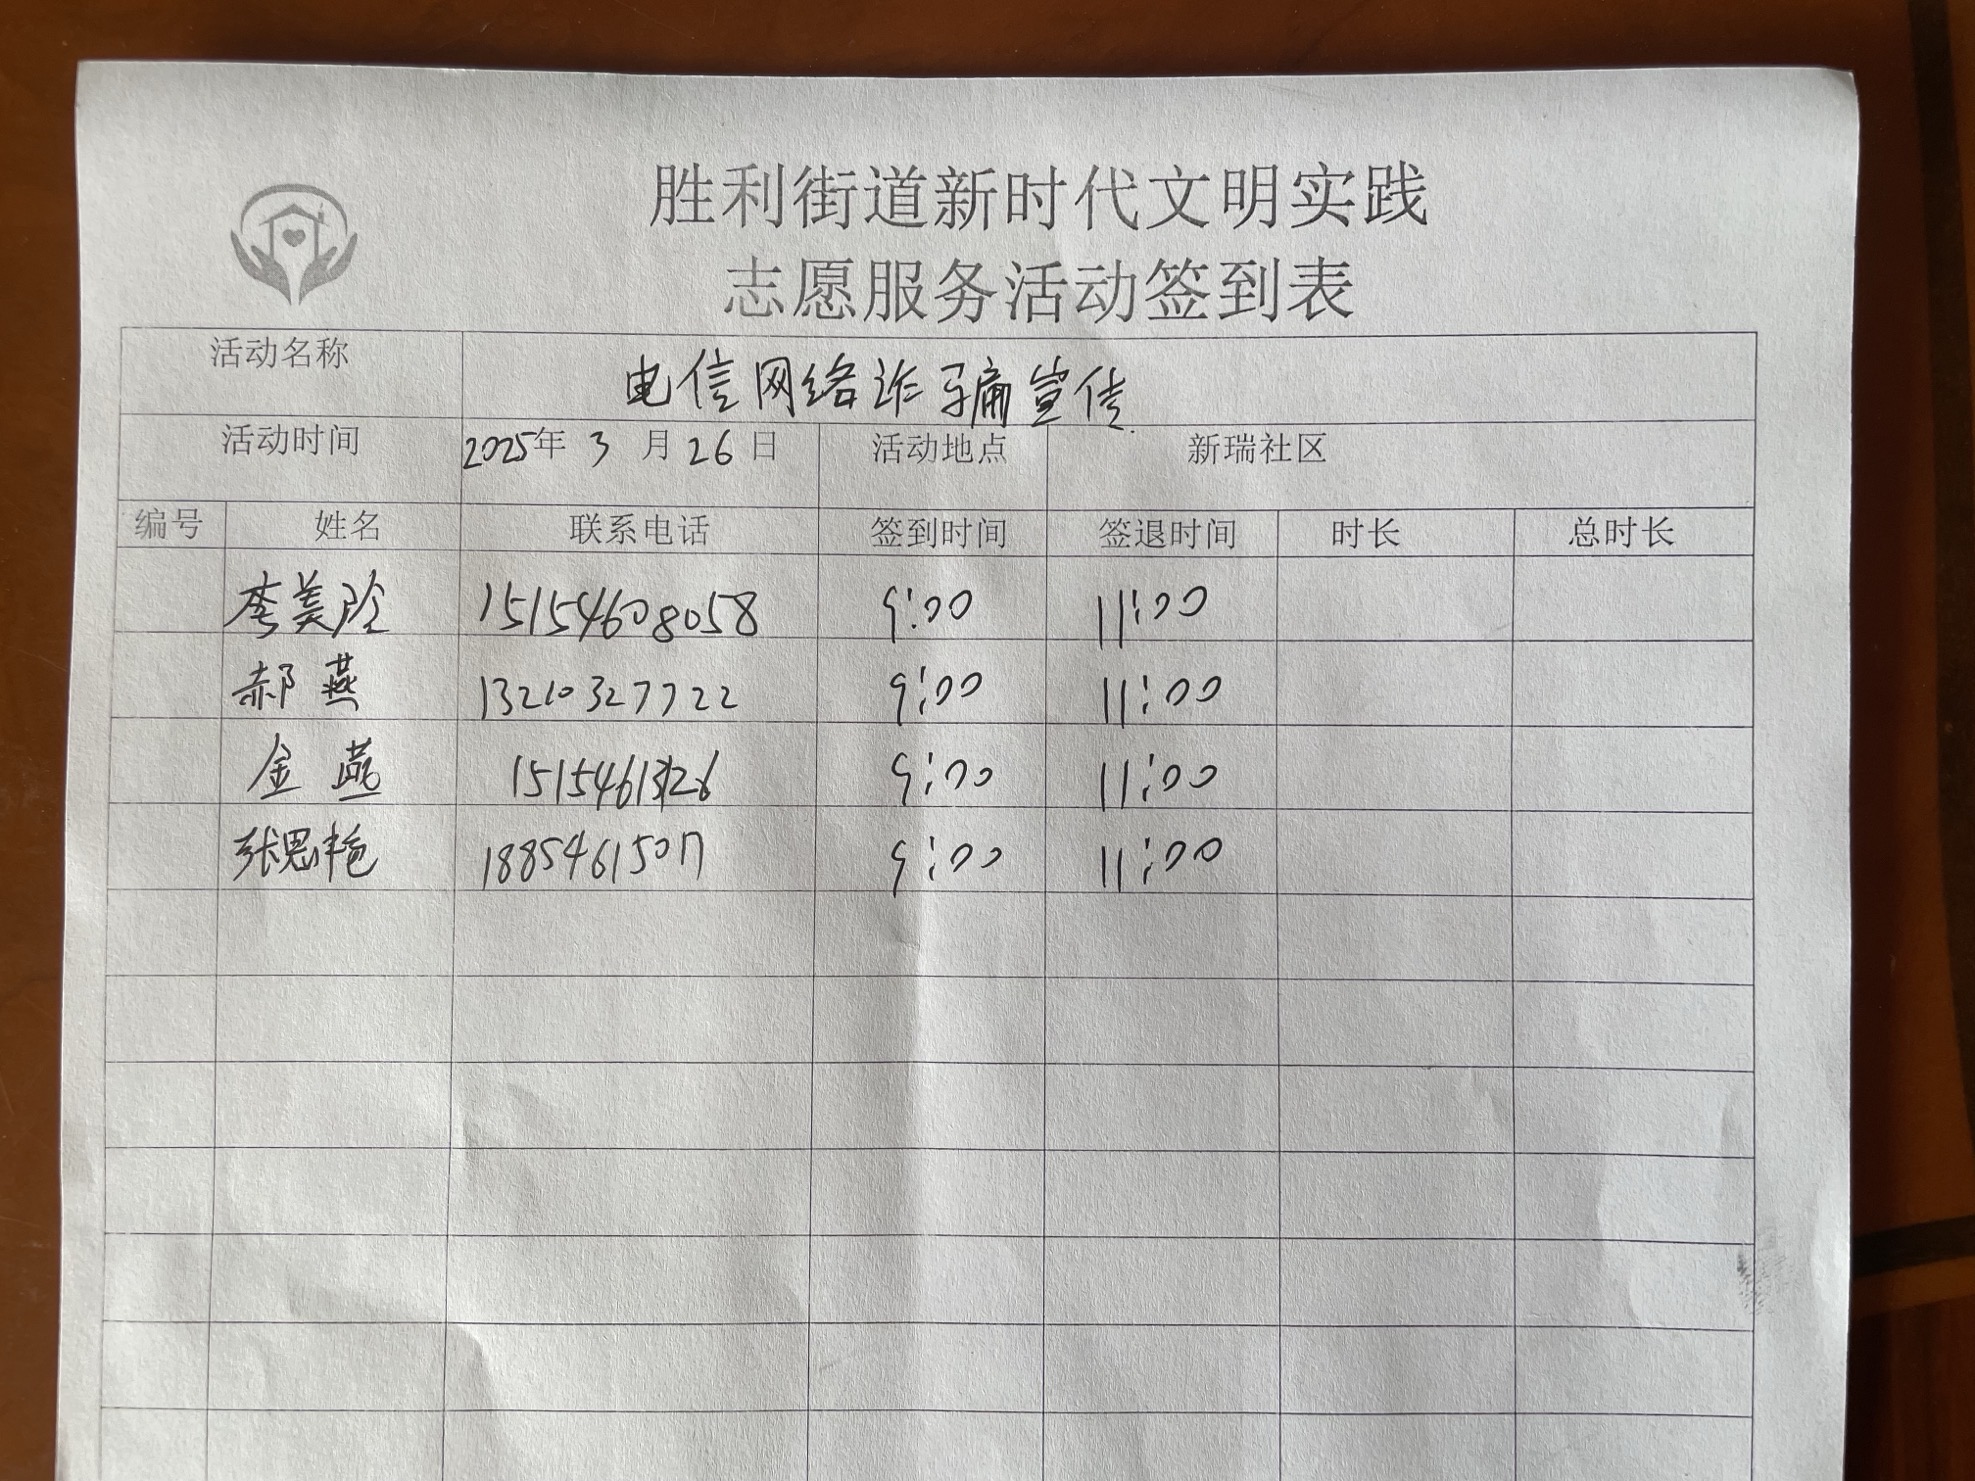 胜利街道新时代文明实践
志愿服务活动签到表
活动名称 电信网络诈骗宣传
活动时间 2025年 3 月 26 日 活动地点 新瑞社区
编号 姓名 联系电话 签到时间 签退时间 时长 总时长
李美玲 15154608058 9:00 11:00
郝燕 13210327722 9:00 11:00
金燕 9:00 11:00
张思艳 18854615017 9:00 11:00